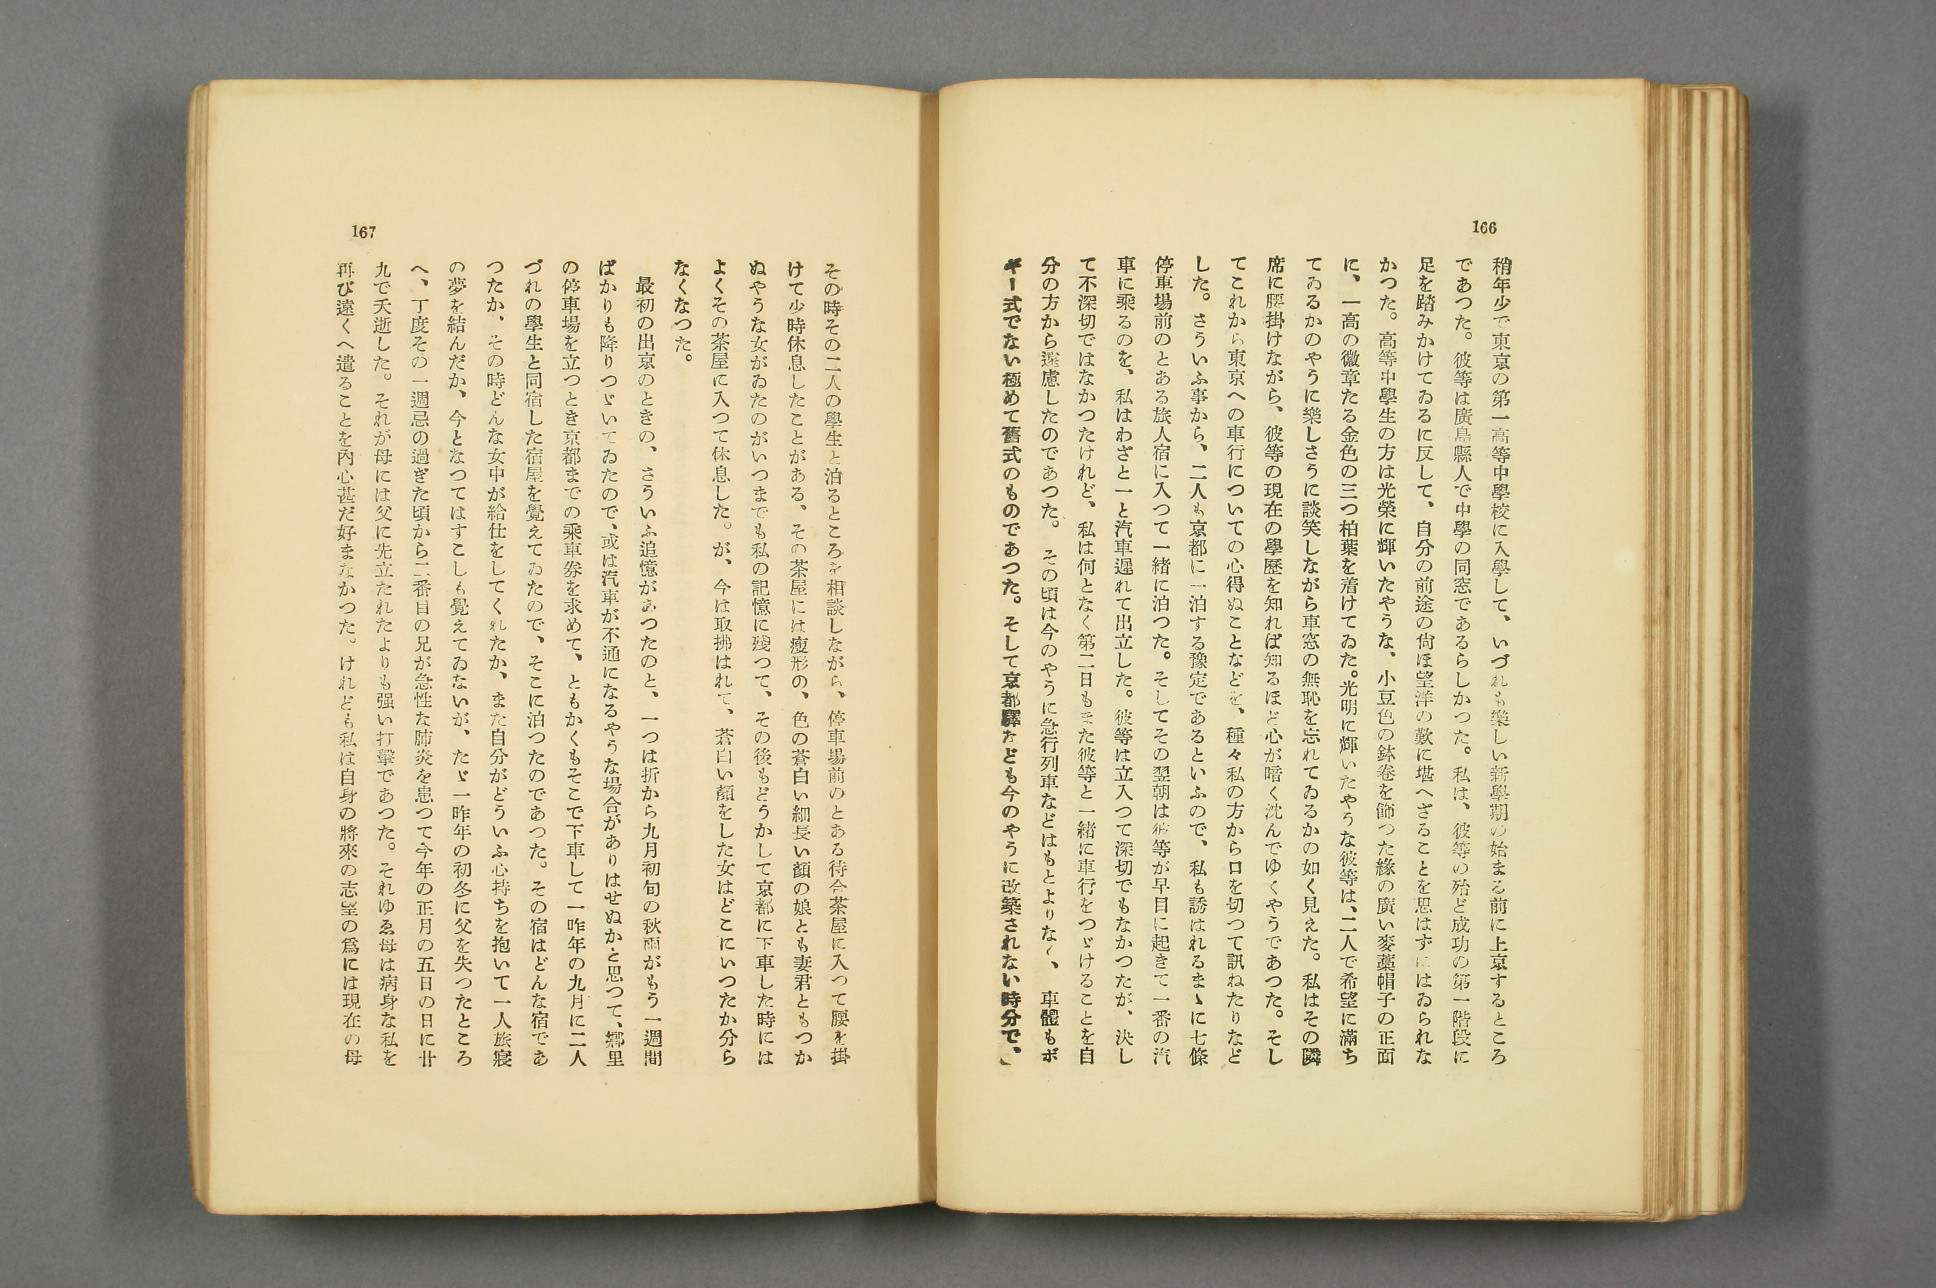 166
稍年少で東京の第一高等中學校に入學して、いづれも樂しい新學期の始まる前に上京するところ
であつた。彼等は廣島縣人で中學の同窓であるらしかつた。私は、彼等の殆ど成功の第一階段に
足を踏みかけてゐるに反して、自分の前途の尙ほ望洋の歎に堪へざることを思はずにはゐられな
かつた。高等中學生の方は光榮に輝いたやうな、小豆色の鉢卷を飾つた緣の廣い麥藁帽子の正面
に、一高の徽章たる金色の三つ柏葉を着けてゐた。光明に輝いたやうな彼等は、二人で希望に滿ち
てゐるかのやうに樂しさうに談笑しながら車窓の無恥を忘れてゐるかの如く見えた。私はその隣
席に腰掛けながら、彼等の現在の學歷を知れば知るほど心が暗く沈んでゆくやうであつた。そし
てこれから東京への車行についての心得ぬことなどを、種々私の方から口を切つて訊ねたりなど
した。さういふ事から、二人も京都に一泊する豫定であるといふので、私も誘はれるまゝに七條
停車場前のとある旅人宿に入つて一緒に泊つた。そしてその翌朝は彼等が早目に起きて一番の汽
車に乘るのを、私はわざと一と汽車遲れて出立した。彼等は立入つて深切でもなかつたが、決し
て不深切ではなかつたけれど、私は何となく第二日もまた彼等と一緒に車行をつゞけることを自
分の方から遠慮したのであつた。その頃は今のやうに急行列車などはもとよりなく、車體もボ
ギー式でない極めて舊式のものであつた。そして京都驛なども今のやうに改築されない時分で、
167
その時その二人の學生と泊るところを相談しながら、停車場前のとある待合茶屋に入つて腰を掛
けて少時休息したことがある、その茶屋には瘦形の、色の蒼白い細長い顏の娘とも妻君ともつか
ぬやうな女がゐたのがいつまでも私の記憶に殘つて、その後もどうかして京都に下車した時には
よくその茶屋に入つて休息した。が、今は取拂はれて、蒼白い顏をした女はどこにいつたか分ら
なくなつた。
最初の出京のときの、さういふ追憶があつたのと、一つは折から九月初旬の秋雨がもう一週間
ばかりも降りつゞいてゐたので、或は汽車が不通になるやうな場合がありはせぬかと思つて、鄕里
の停車場を立つとき京都までの乘車券を求めて、ともかくもそこで下車して一昨年の九月に二人
づれの學生と同宿した宿屋を覺えてゐたので、そこに泊つたのであつた。その宿はどんな宿であ
つたか、その時どんな女中が給仕をしてくれたか、また自分がどういふ心持ちを抱いて一人旅寢
の夢を結んだか、今となつてはすこしも覺えてゐないが、たゞ一昨年の初冬に父を失つたところ
へ、丁度その一週忌の過ぎた頃から二番目の兄が急性な肺炎を患つて今年の正月の五日の日に廿
九で夭逝した。それが母には父に先立たれたよりも强い打擊であつた。それゆゑ母は病身な私を
再び遠くへ遣ることを內心甚だ好まなかつた。けれども私は自身の將來の志望の爲には現在の母